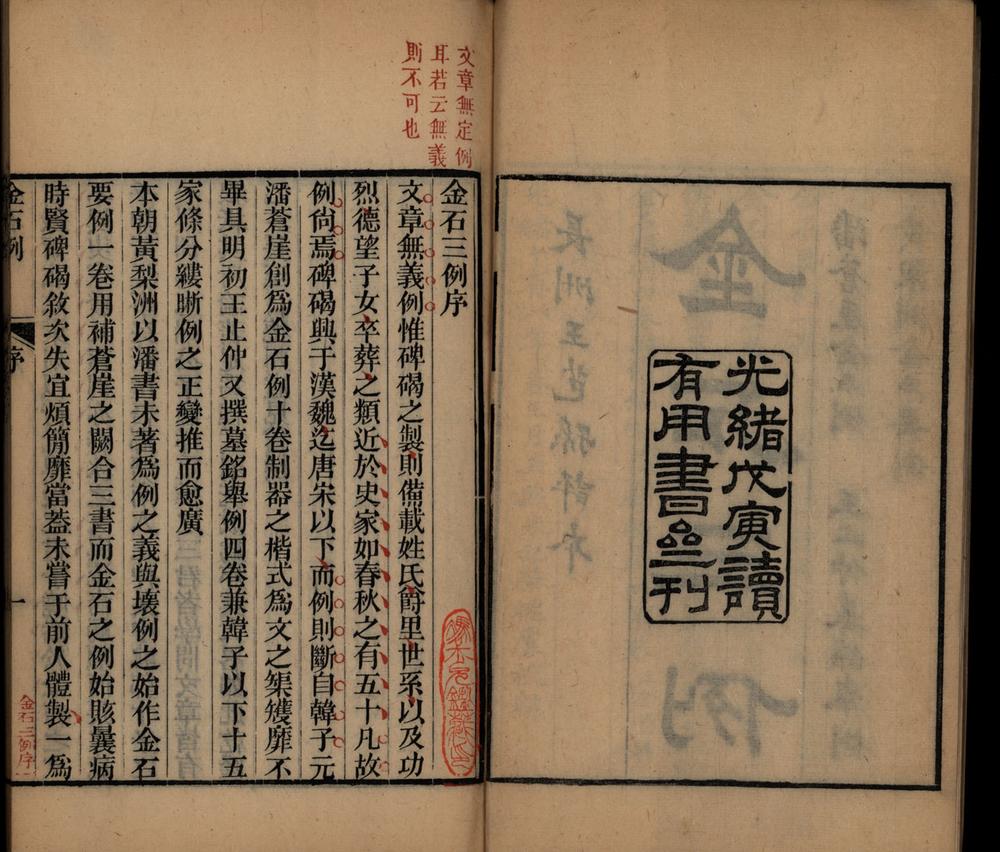 光緒戊寅讀
有用書齋刊
文章無定例
耳若云無義
則不可也
金石三例序
文章無義例惟碑碣之製則備載姓氏爵里世系以及功
烈德望子女卒葬之類近於史家如春秋之有五十凡故
例尚焉碑碣興于漢魏迄唐宋以下而例則斷自韓子元
潘蒼崖創為金石例十卷制器之楷式為文之榘矱靡不
畢具明初王止仲又撰墓銘舉例四卷兼韓子以下十五
家條分縷晰例之正變推而愈廣
本朝黃梨洲以潘書未著為例之義與壞例之始作金石
要例一卷用補蒼崖之闕合三書而金石之例始賅曩病
時賢碑碣敘次失宜煩簡靡當蓋未嘗于前人體製一為
金石例
序
一
金石三例序一